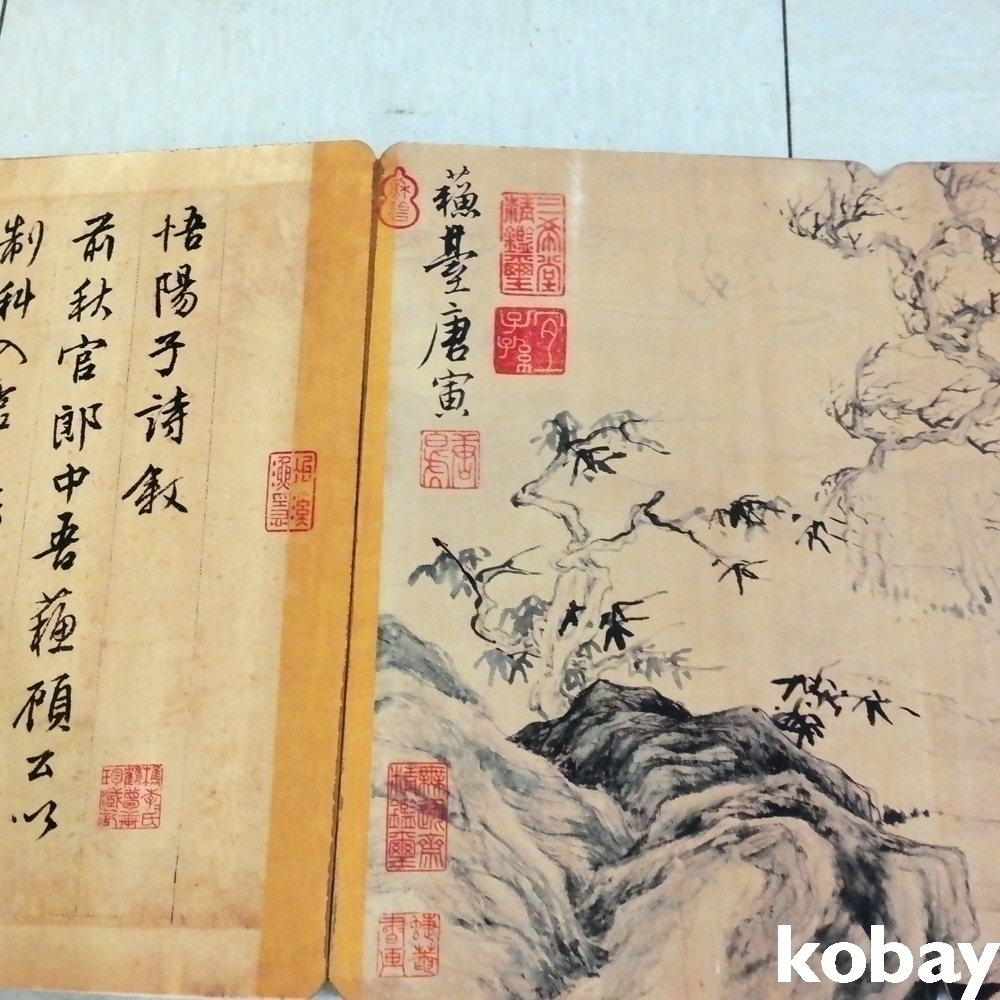 蘓臺唐寅
三希堂精鑑璽
宜子孫
唐寅
悟陽子詩敘
前秋官郎中吾蘓顧公以
制科入官
kobay